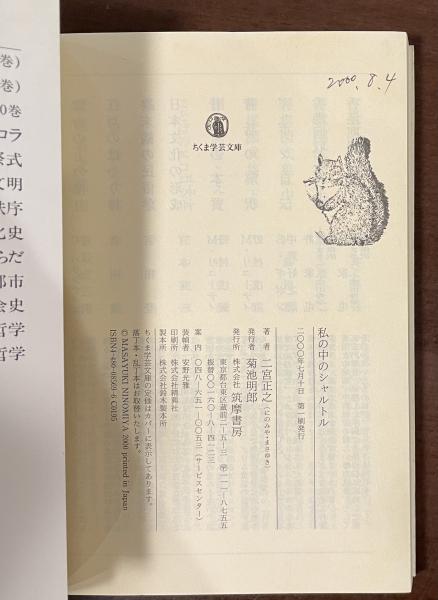 2000.8.4
ちくま学芸文庫
私の中のシャルトル
二〇〇〇年七月十日 第一刷発行
著者 二宮正之(にのみや・まさゆき)
発行者 菊池明郎
発行所 株式会社 筑摩書房
東京都台東区蔵前二—五—三 〒一一一—八七五五
振替〇〇一六〇—八—四一二三
案内 〇四八—六五一—〇〇五三(サービスセンター)
装幀者 安野光雅
印刷所 株式会社精興社
製本所 株式会社鈴木製本所
ちくま学芸文庫の定価はカバーに表示してあります。
落丁本・乱丁本はお取替いたします。
© MASAYUKI NINOMIYA 2000 printed in Japan
ISBN4-480-08569-6 C0195
巻)
巻)
0巻
コラ
祭式
文明
秩序
化史
らだ
都市
会史
哲学
哲学